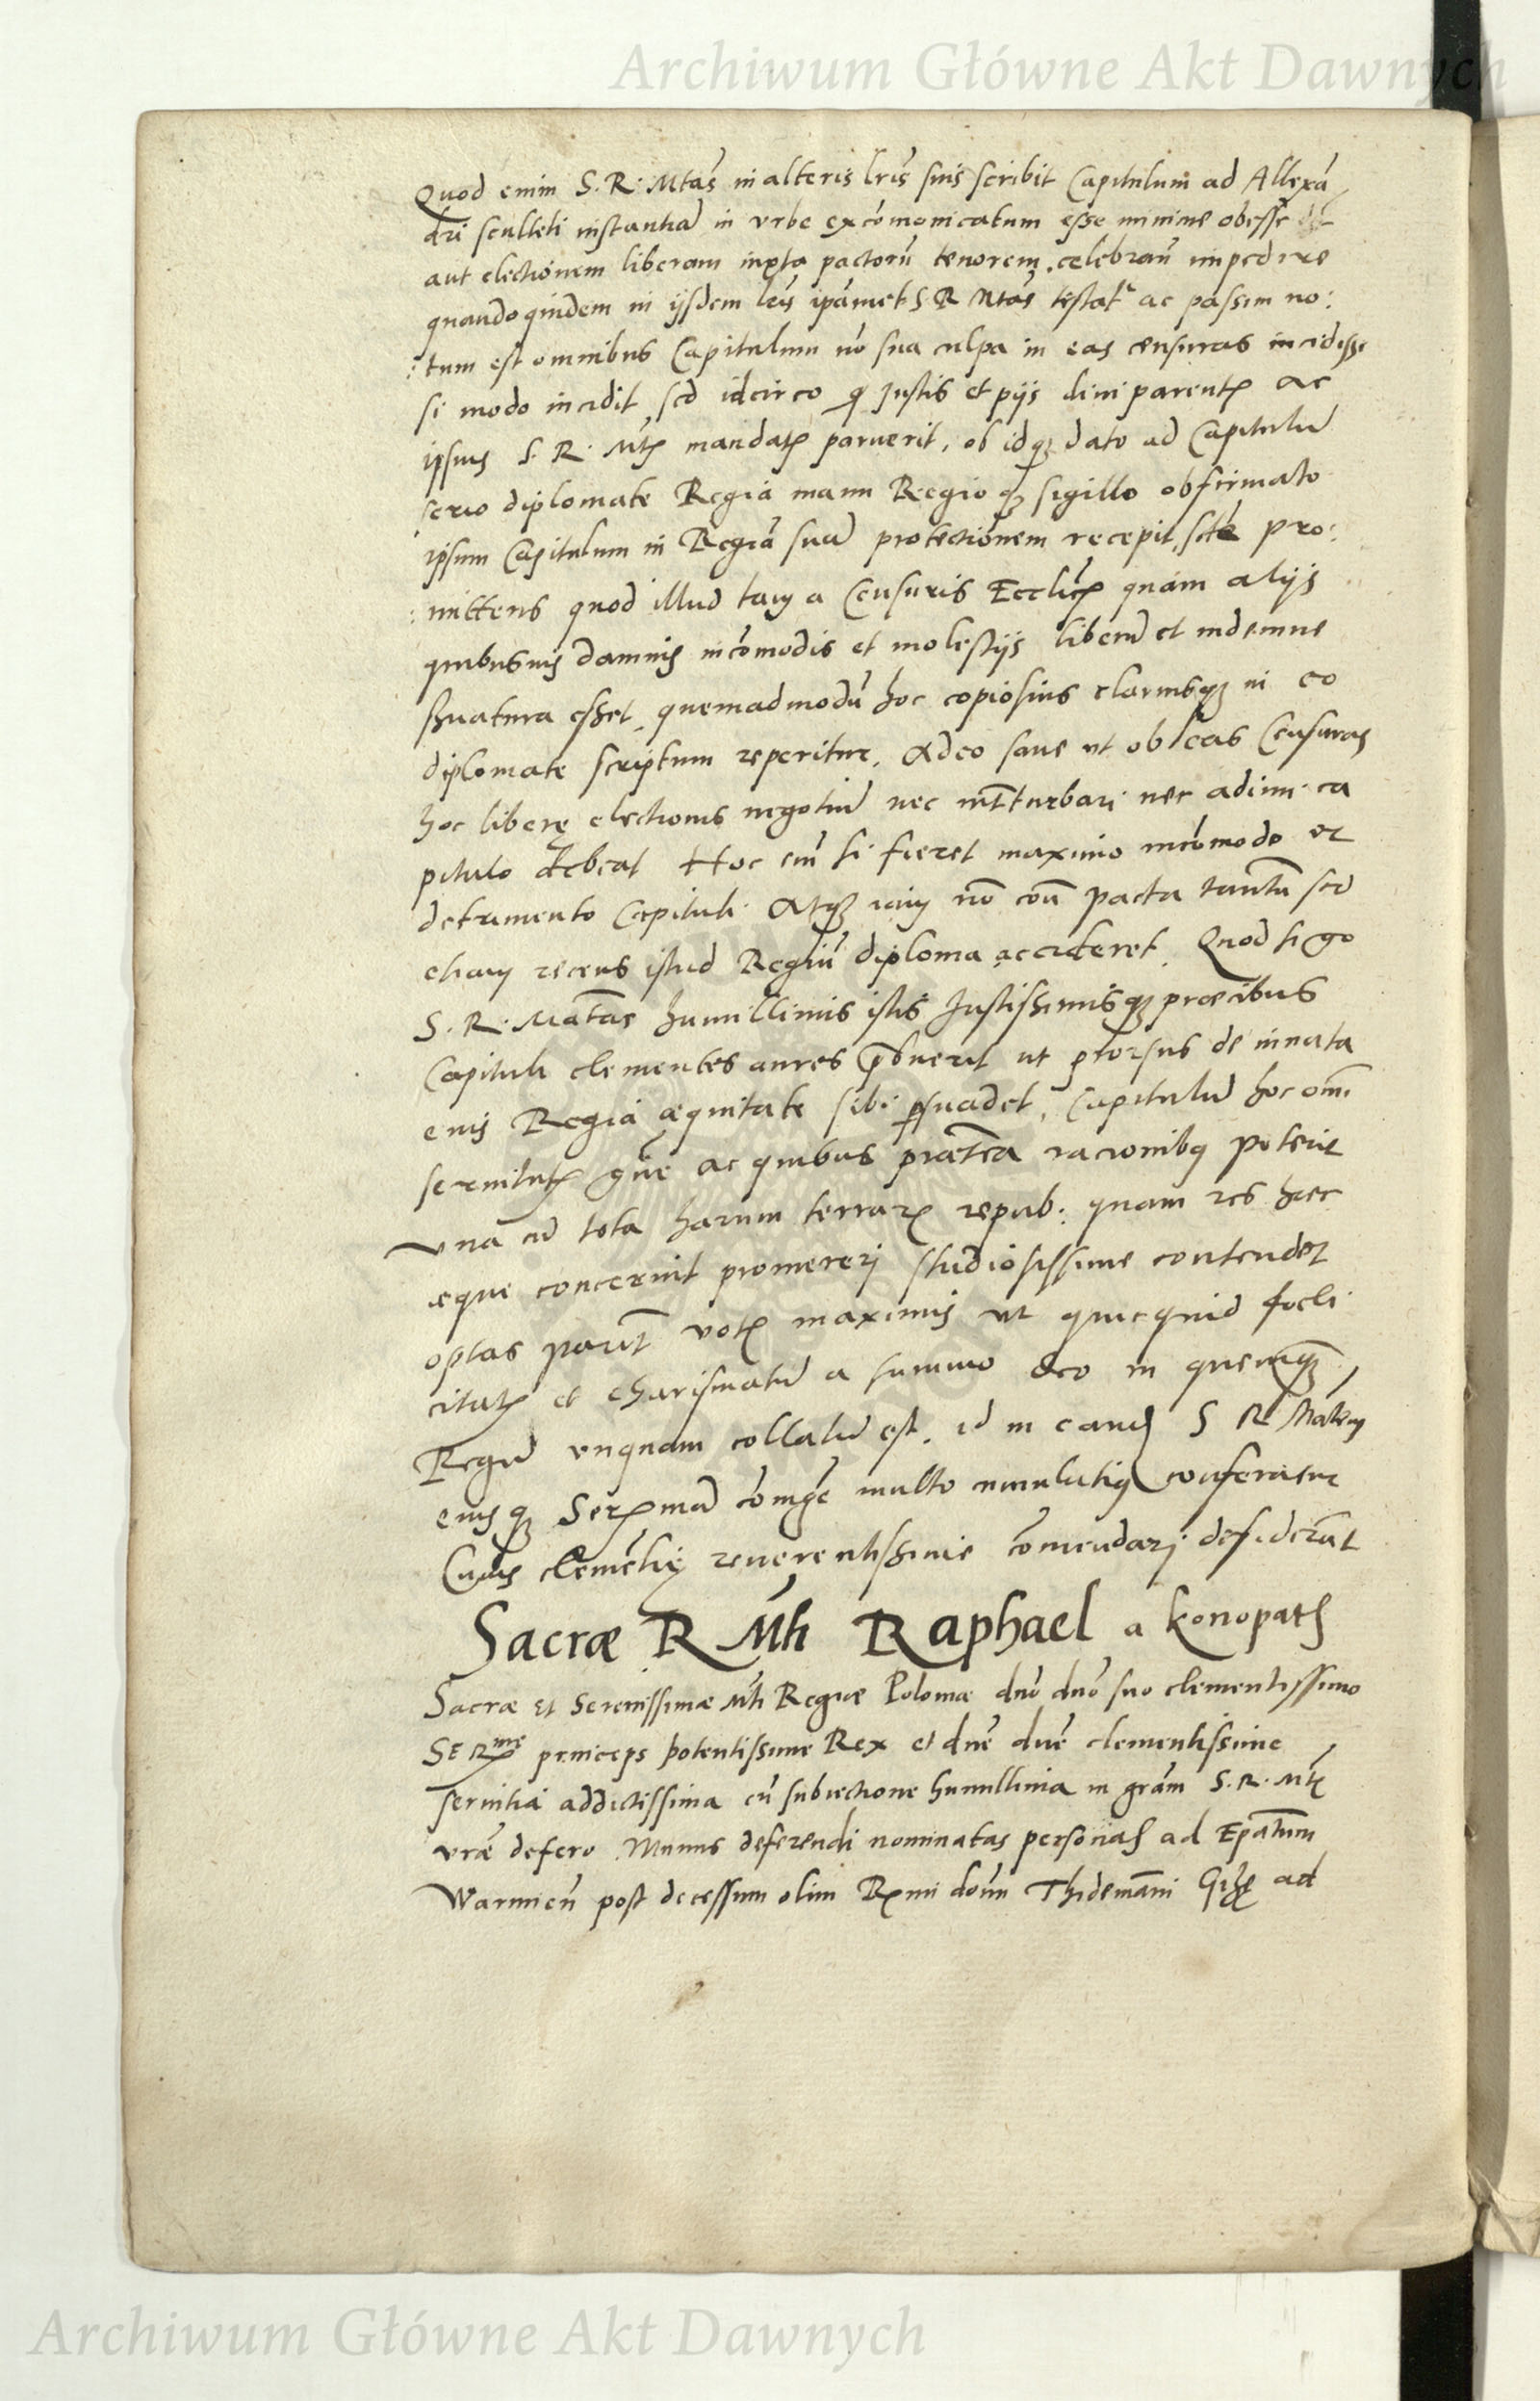 Archiwum Główne Akt Dawnych
Quod enim S. R. Mtas in alteris lris suis scribit Capitulum ad Allexā
dri sculteti instantiā in vrbe excōmonicatum esse minime obesse
aut electiōnem liberam iuxta pactorū tenorem celebran̄ impedire
quandoquidem in ijsdem lris ipāmet S R Mtas testatʳ ac passim no:
:tum est omnibus Capitulum nō sua culpa in eas censuras incidisse
si modo incidit sed idcirco q Justis et pijs diui parentꝭ ac
ipsius S. R. Mtꝭ mandatꝭ paruerit, ob idqꝫ dato ad Capitulū
serio diplomate Regia manu Regioqꝫ sigillo obfirmato
ipsum Capitulum in Regiā suā protectiōnem recepit, scte pro:
:mittens quod illud tam a Censuris Ecclicꝭ quam alijs
quibusuis damnis incōmodis et molestijs liberū et indemne
sʒuatura esset, quemadmodū hoc copiosius clariusqꝫ in eo
diplomate scriptum reperitur. Adeo sane ut ob eas Censuras
hoc liberę electionis negotiū nec interturbari nec adimi ca
pitulo debeat Hoc em̄ si fieret maximo incōmodo et
detrimento Capituli Atqꝫ iam nō con̄ pacta tantū sed
etiam recens istud Regiū diploma accideret. Quod si ego
S. R. Matas humillimis istis Justissimisqꝫ præcibus
Capituli clementes aures p̄buerit ut prorsus de innata
eius Regia æquitate sibi ꝑsuadet, Capitulū hoc omi
seruitutꝭ gn̄e ac quibus præterea racionibꝫ poterit
vna cū tota harum terrarꝭ repub: quam res hæc
æque concernit promererj studiosissime contendet
optas pariter votꝭ maximis ut quicquid fœli
citatꝭ et charismatū a summo deo in quemqꝫ
Regū vnquam collatū est, id in eand S R Matem
eiusqꝫ Serꝭmā cōiugē multo cumulatiꝫ conferatur
Cuius clementię reuerentissime cōmendarj desiderat
Sacræ R Mti Raphael a konopath
Sacræ et Serenissimæ Mti Regiæ Poloniæ dno dno suo clementissimo
SERᵐᵉ princeps potentissime Rex et dne dne clementissime
seruitia addictissima cū subiectione humillima in grām S. R. Mtꝭ
vræ defero. Munus deferendi nominatas personas ad Epatum
Warmien̄ post decessum olim Rꝭmi domī Thidemanni Gizę ad
Archiwum Główne Akt Dawnych